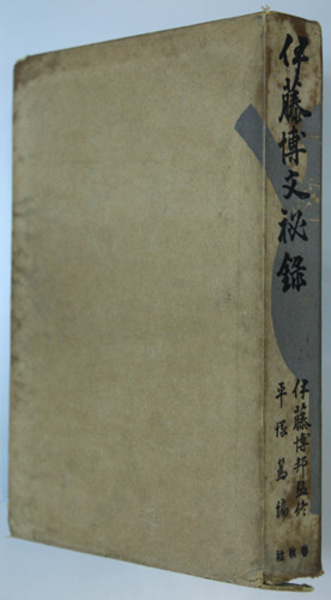 伊藤博文秘録
伊藤博邦監修
平塚篤編
春秋社